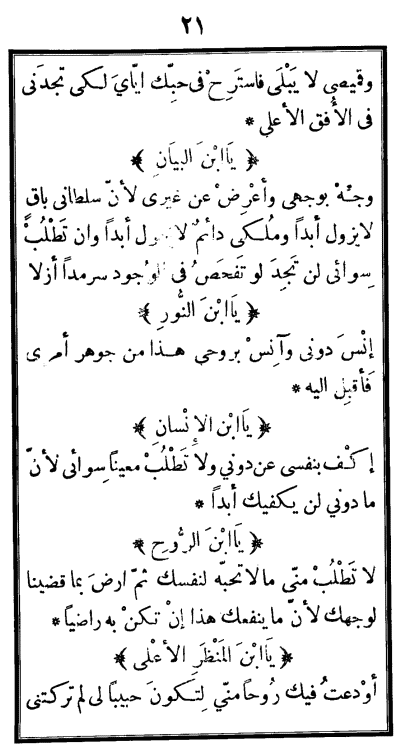 ٢١
وقميصي لا يَبْلَى فاسترِحْ فى حبِّك ايّايَ لكى تجدَنى
فى الأُفق الأعلى *
﴿ يَاابْنَ البيَانِ ﴾
وجِّهْ بوجهى وأعْرِضْ عن غيرى لأنّ سلطانى باق
لايزول أبداً ومُلْكى دائمٌ لا يحول أبداً وان تَطْلُبْ
سِوائى لن تَجِدَ لو تَفحَصُ فى الوُجود سرمداً أزلا
﴿ يَاابْنَ النُّورِ ﴾
إنْسَ دونى وآنِسْ بروحي هـذا من جوهر أمرى
فَأقبِل اليه *
﴿ يَاابْن الإِنْسان ﴾
إكْف بنفسى عن دوني ولا تَطْلُبْ معيناً سِوائى لأنّ
ما دوني لن يكفيك أبداً *
﴿ يَاابْنَ الرُّوحِ ﴾
لا تَطْلُبْ منّى مالاتحبّه لنفسك ثمّ ارضَ بما قضينا
لوجهك لأنّ ماينفعك هذا إنْ تكنْ به راضياً *
﴿ يَاابْنَ المَنْظَرِ الأعْلى ﴾
أوْدعتُ فيك رُوحاً منّي لِتَكونَ حبيباً لى لم تركتنى